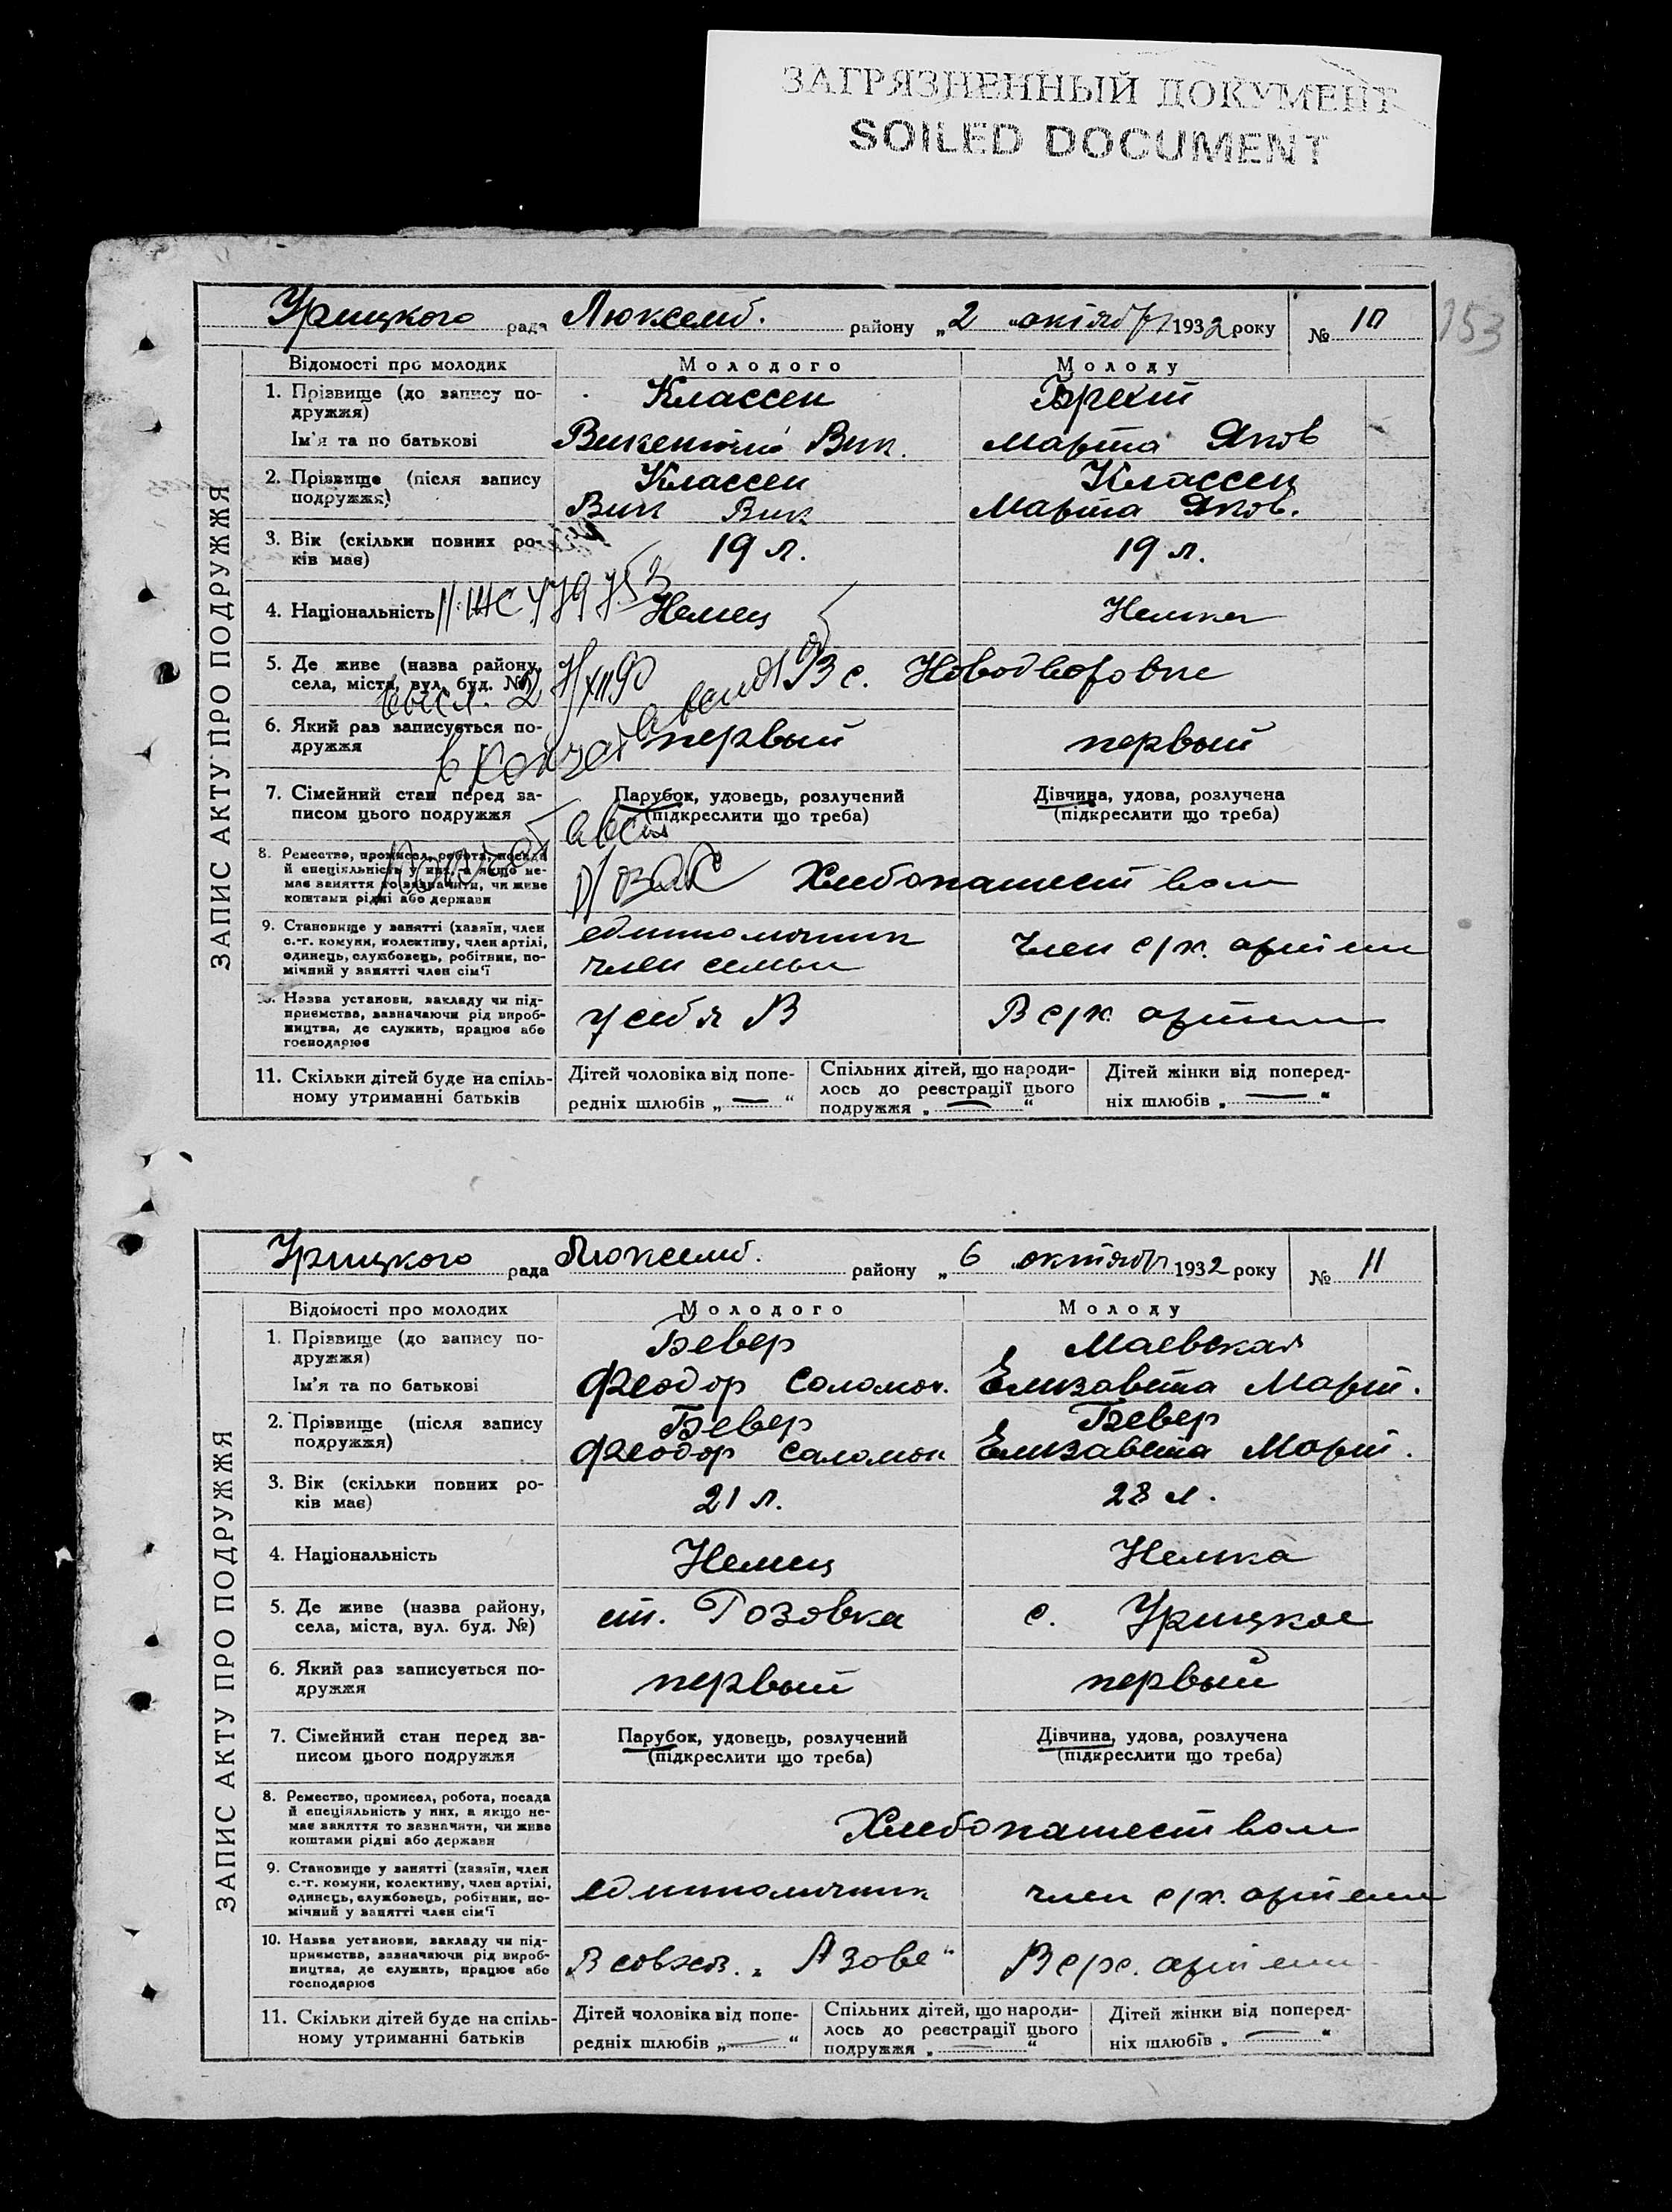 ЗАГРЯЗНЕННЫЙ ДОКУМЕНТ
SOILED DOCUMENT
153
Урицкого рада Люксемб. району „2 „октября 1932 року № 10
ЗАПИС АКТУ ПРО ПОДРУЖЖЯ
Відомості про молодих Молодого Молоду
1. Прізвище (до запису по-
дружжя) Классен Брехт
Ім'я та по батькові Викентий Вик. Марта Яков
2. Прізвище (після запису Классен Классен
подружжя) Вик Вик Марта Яков.
3. Вік (скільки повних ро-
ків має) 19 л. 19 л.
4. Національність Немец Немка
5. Де живе (назва району,
села, міста, вул. буд. №) В с. Новодворовке
6. Який раз записується по-
дружжя первый первый
7. Сімейний стан перед за-
писом цього подружжя
Парубок, удовець, розлучений
(підкреслити що треба)
Дівчина, удова, розлучена
(підкреслити що треба)
8. Ремество, промисел, робота, посада
й спеціяльність у них, а якщо не-
має заняття то зазначити, чи живе
коштами рідні або держави
Хлебопашеством
9. Становище у занятті (хазяїн, член
с.-г. комуни, колективу, член артілі,
одинець, службовець, робітник, по-
мічний у занятті член сім'ї
единоличник
член семьи
член с/х. артели
10. Назва установи, закладу чи під-
приємства, зазначаючи рід вироб-
ництва, де служить, працює або
господарює
у себя В
В с/х. артели
11. Скільки дітей буде на спіль-
ному утриманні батьків
Дітей чоловіка від попе-
редніх шлюбів „ — “
Спільних дітей, що народи-
лось до реєстрації цього
подружжя „ — “
Дітей жінки від поперед-
ніх шлюбів „ — “
Урицкого рада Люксемб. району „6 „октября 1932 року № 11
ЗАПИС АКТУ ПРО ПОДРУЖЖЯ
Відомості про молодих Молодого Молоду
1. Прізвище (до запису по-
дружжя) Бевер Маевская
Ім'я та по батькові Феодор Соломон. Елизавета Март.
2. Прізвище (після запису Бевер Бевер
подружжя) Феодор Саломон Елизавета Март.
3. Вік (скільки повних ро-
ків має) 21 л. 28 л.
4. Національність Немец Немка
5. Де живе (назва району,
села, міста, вул. буд. №) ст. Розовка с. Урицкое
6. Який раз записується по-
дружжя первый первый
7. Сімейний стан перед за-
писом цього подружжя
Парубок, удовець, розлучений
(підкреслити що треба)
Дівчина, удова, розлучена
(підкреслити що треба)
8. Ремество, промисел, робота, посада
й спеціяльність у них, а якщо не-
має заняття то зазначити, чи живе
коштами рідні або держави
Хлебопашеством
9. Становище у занятті (хазяїн, член
с.-г. комуни, колективу, член артілі,
одинець, службовець, робітник, по-
мічний у занятті член сім'ї
единоличник
член с/х. артели
10. Назва установи, закладу чи під-
приємства, зазначаючи рід вироб-
ництва, де служить, працює або
господарює
В совхоз. „Азове“
В с/х. артели
11. Скільки дітей буде на спіль-
ному утриманні батьків
Дітей чоловіка від попе-
редніх шлюбів „ — “
Спільних дітей, що народи-
лось до реєстрації цього
подружжя „ — “
Дітей жінки від поперед-
ніх шлюбів „ — “